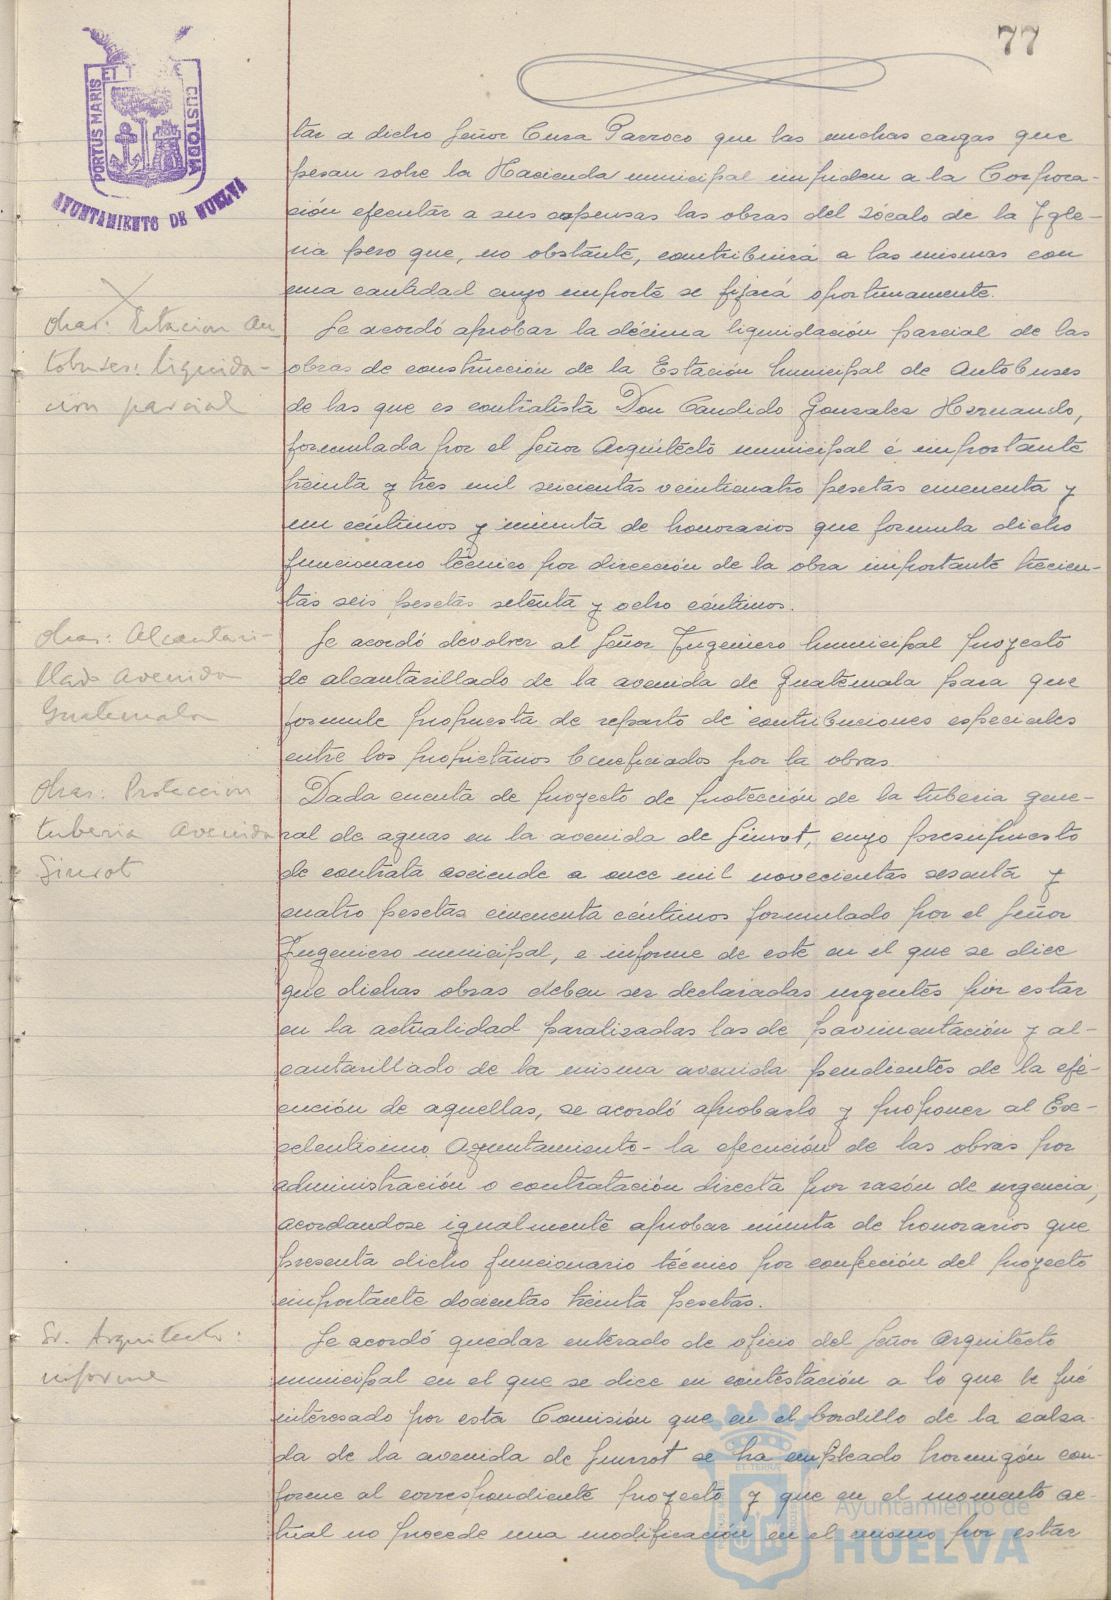 77
PORTUS MARIS ET TERRAE CUSTODIA
AYUNTAMIENTO DE HUELVA
tar a dicho Señor Cura Parroco que las muchas cargas que
pesan sobre la Hacienda municipal impiden a la Corpora-
ción ejecutar a sus expensas las obras del zócalo de la Igle-
sia pero que, no obstante, contribuirá a las mismas con
una cantidad cuyo importe se fijará oportunamente.
Obras: Estacion Au
tobuses: liquida-
cion parcial
Se acordó aprobar la décima liquidación parcial de las
obras de construcción de la Estación municipal de Autobuses
de las que es contratista Don Candido Gonzalez Hernando,
formulada por el Señor Arquitecto municipal é importante
treinta y tres mil seicientas veinticuatro pesetas cincuenta y
un céntimos y minuta de honorarios que formula dicho
funcionario técnico por dirección de la obra importante trecien-
tas seis pesetas setenta y ocho céntimos.
Obras: Alcantari-
llado Avenida
Guatemala
Se acordó devolver al Señor Ingeniero municipal proyecto
de alcantarillado de la avenida de Guatemala para que
formule propuesta de reparto de contribuciones especiales
entre los propietarios beneficiados por la obras.
Obras: Proteccion
tuberia Avenida
Girurot
Dada cuenta de proyecto de protección de la tuberia gene-
ral de aguas en la avenida de cuyo presupuesto
de contrata asciende a once mil novecientas sesenta y
cuatro pesetas cincuenta céntimos formulado por el Señor
Ingeniero municipal, e informe de este en el que se dice
que dichas obras deben ser declaradas urgentes por estar
en la actualidad paralizadas las de pavimentación y al-
cantarillado de la misma avenida pendientes de la eje-
cución de aquellas, se acordó aprobarlo y proponer al Exe-
celentisimo Ayuntamiento - la ejecución de las obras por
administración o contratación directa por razón de urgencia,
acordandose igualmente aprobar minuta de honorarios que
presenta dicho funcionario técnico por confección del proyecto
importante docientas treinta pesetas.
Sr. Arquitecto:
informe
Se acordó quedar enterado de oficio del Señor Arquitecto
municipal en el que se dice en contestación a lo que le fué
interesado por esta Comisión que en el bordillo de la calza-
da de la avenida de se ha empleado hormigón con-
forme al correspondiente proyecto y que en el momento ac-
tual no procede una modificación en el mismo por estar
Ayuntamiento de
HUELVA